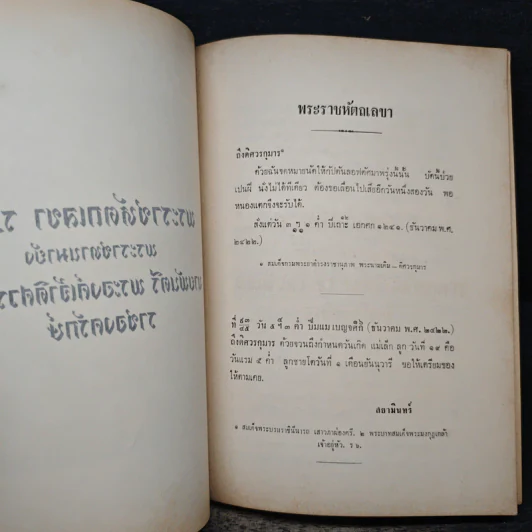 พระราชหัตถเลขา
ถึงดิศวรกุมาร๑
ด้วยฉันจดหมายนัดให้กัปตันลอฟตัศมาพรุ่งนี้นั้น บัดนี้ป่วย
เปนฝี นั่งไม่ได้ทีเดียว ต้องขอเลื่อนไปเสียอีกวันหนึ่งสองวัน พอ
หนองแตกจึงจะรับได้.
สั่งแต่วัน ๑ ค่ำ ปีเถาะ เอกศก ๑๒๔๑. (ธันวาคม พ.ศ.
๒๔๒๒.)
๑ สมเด็จกรมพระยาดำรงราชานุภาพ พระนามเดิม–ดิศวรกุมาร
ที่ วัน ๕ ๓ ค่ำ ปีมแม เบญจศก (ธันวาคม พ.ศ. ๒๔๒๒.)
ถึงดิศวรกุมาร ด้วยจวนถึงกำหนดวันเกิด แม่เล็ก ลูก วันที่ ๑๙ คือ
วันแรม ๕ ค่ำ ลูกชายโตวันที่ ๑ เดือนยันนุวารี ขอให้เตรียมของ
ให้ตามเคย.
สยามินทร์
๑ สมเด็จพระบรมราชินีนารถ เสาวภาผ่องศรี. ๒ พระบาทสมเด็จพระมงกุฎเกล้า
เจ้าอยู่หัว. ร ๖.